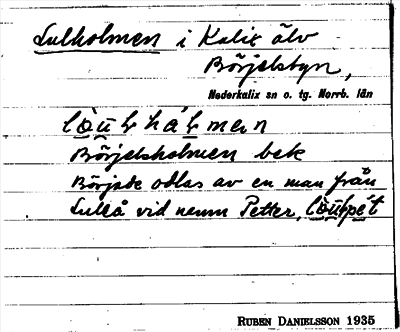 Lulholmen i Kalix älv
Börjelsbyn,
Nederkalix sn o. tg. Norrb. län
Börjelsholmen bek
Började odlas av en man från
Luleå vid namn Petter,
RUBEN DANIELSSON 1935